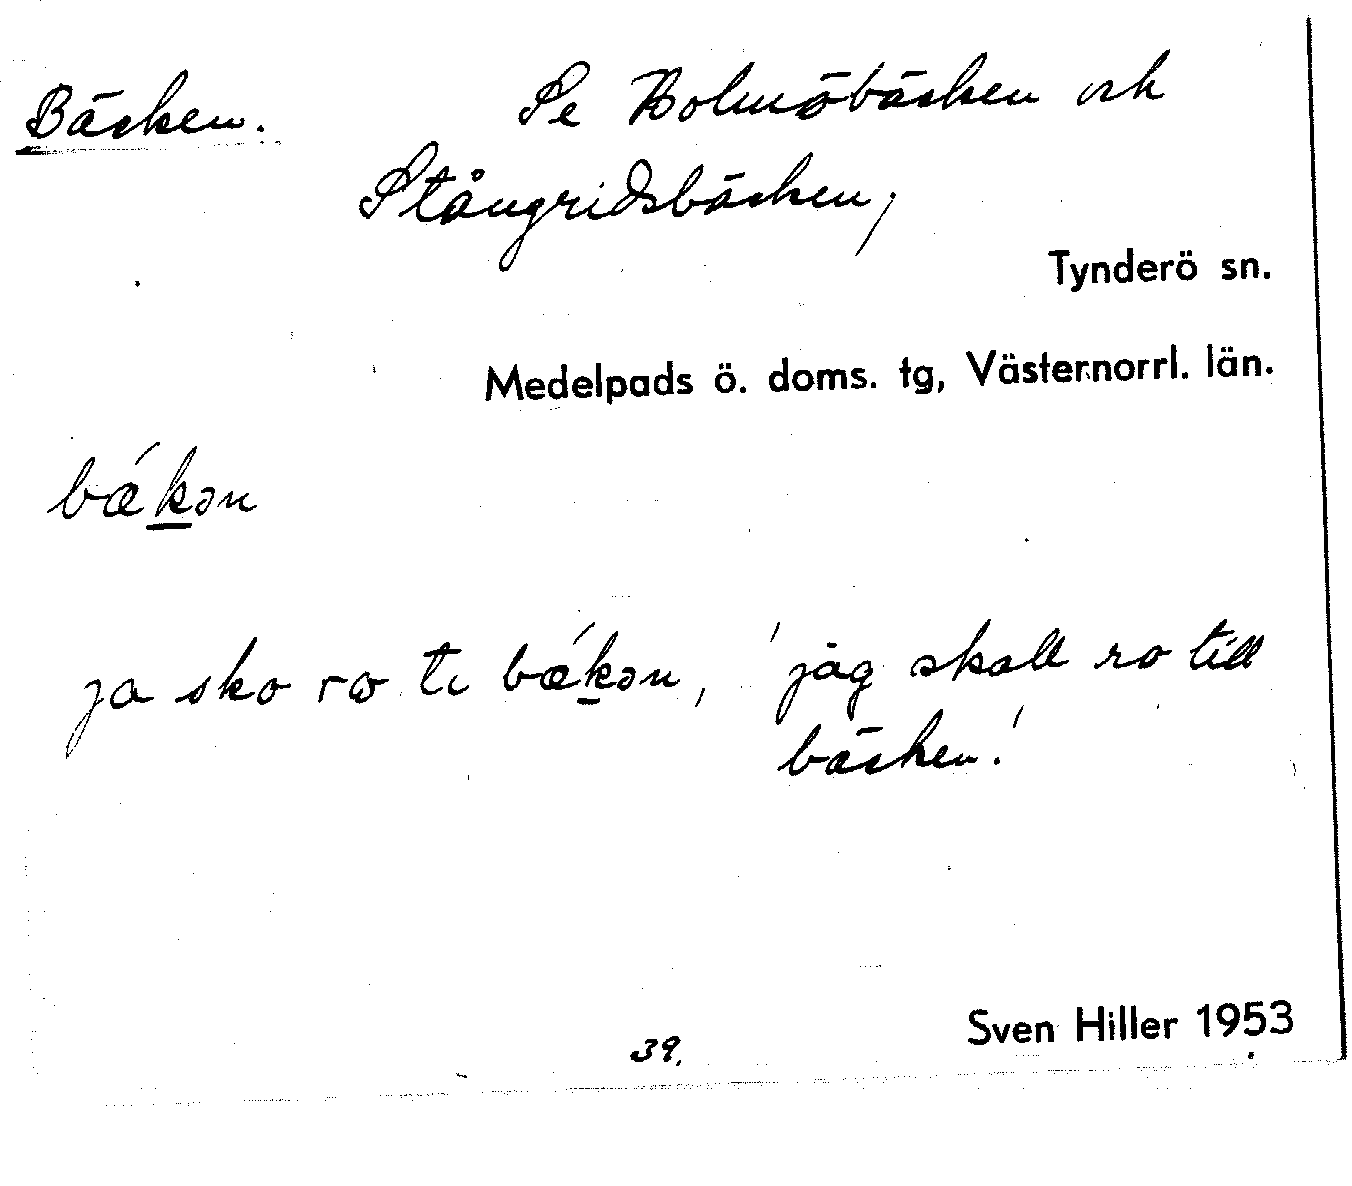 Bäcken. Se Holmöbäcken och
Stångridsbäcken,
Tynderö sn.
Medelpads ö. doms. tg, Västernorrl. län.
bǽkən
ja sko ro te bǽkən, 'jag skall ro till
bäcken.'
39.
Sven Hiller 1953